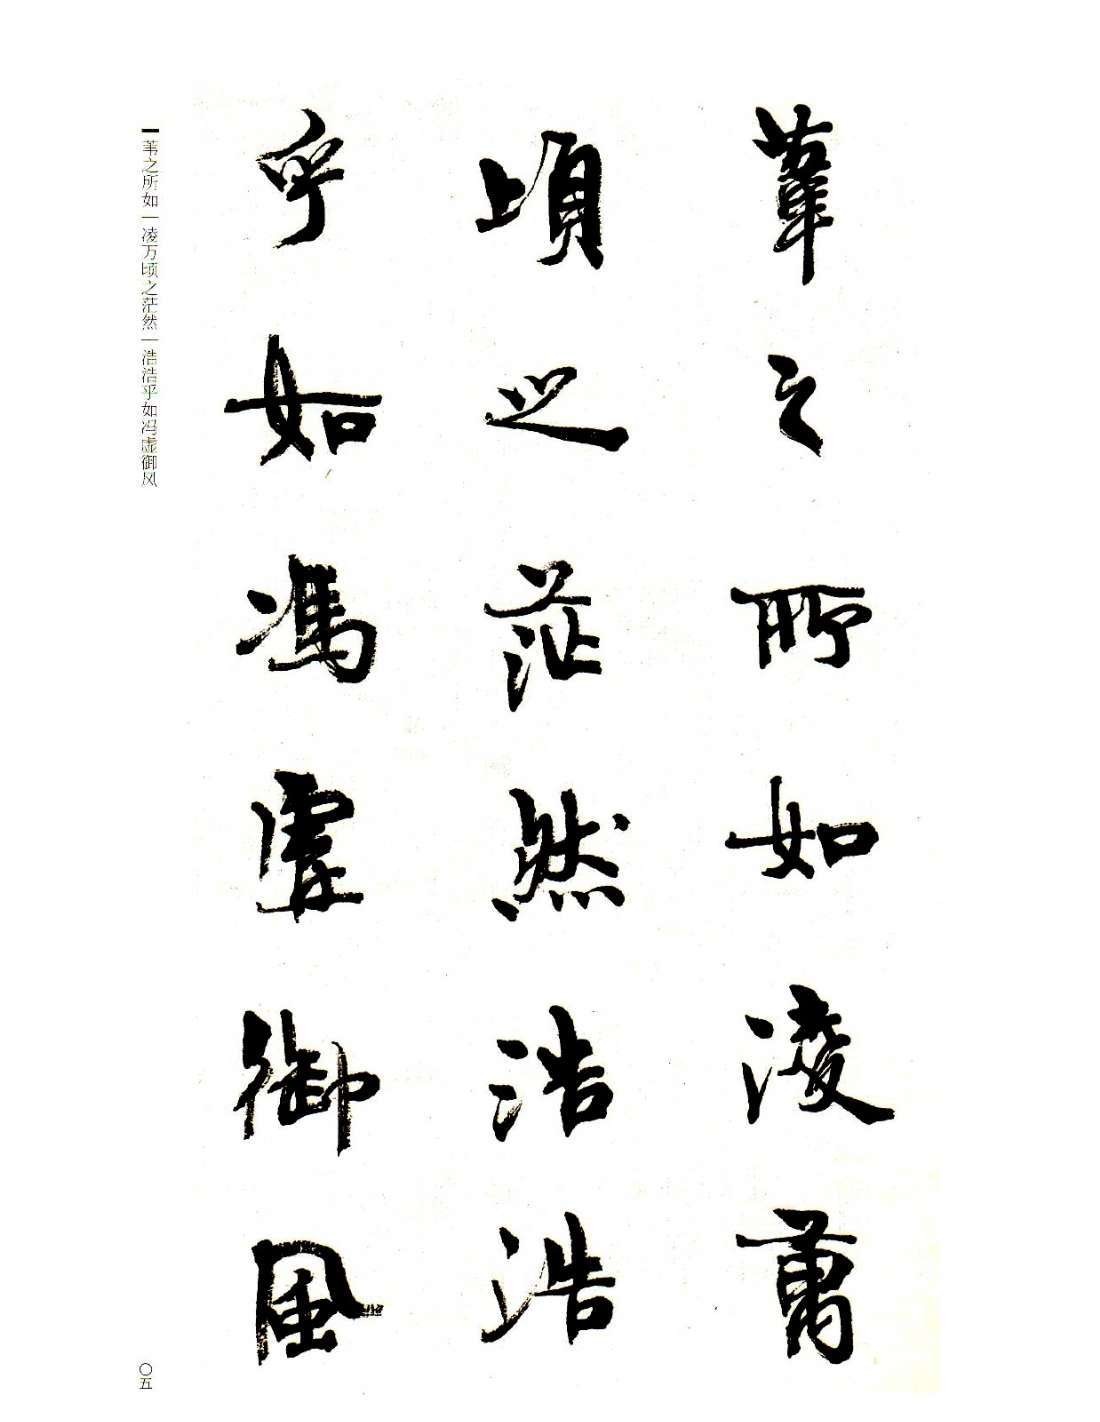 葦之所如淩萬
頃之茫然浩浩
乎如馮虛御風
苇之所如｜凌万顷之茫然｜浩浩乎如冯虚御风
〇五